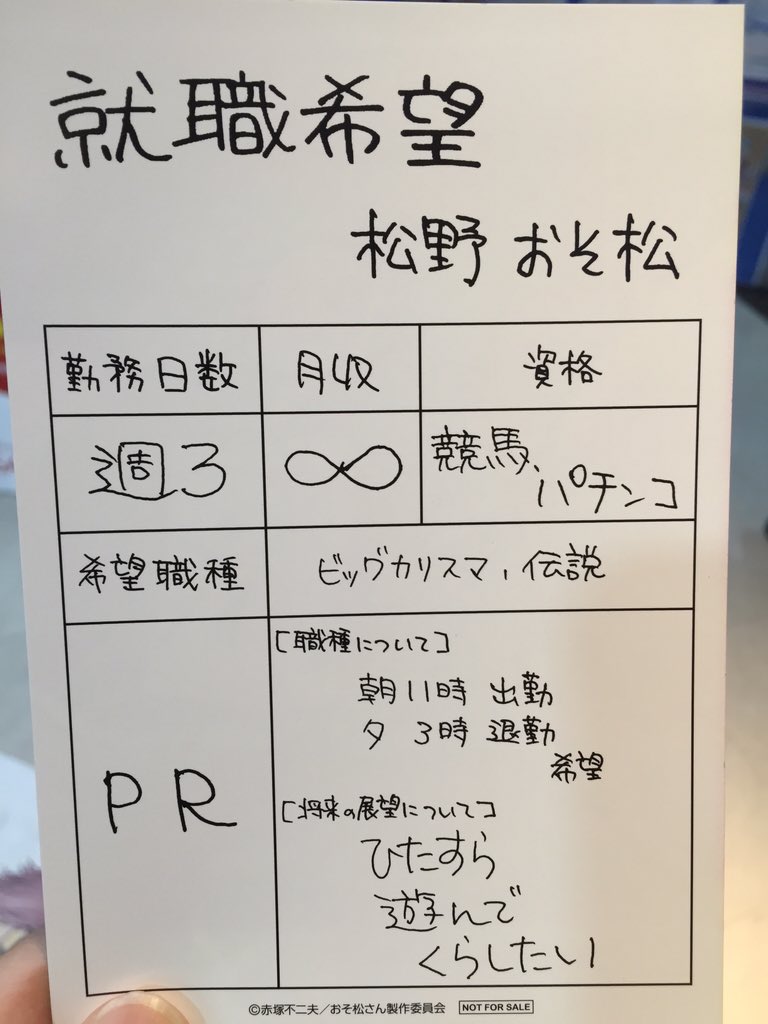 就職希望
松野 おそ松
勤務日数 月収 資格
週3 ∞ 競馬、
パチンコ
希望職種 ビッグカリスマ、伝説
PR
[職種について]
朝11時 出勤
夕 3時 退勤
希望
[将来の展望について]
ひたすら
遊んで
くらしたい
©赤塚不二夫/おそ松さん製作委員会 NOT FOR SALE